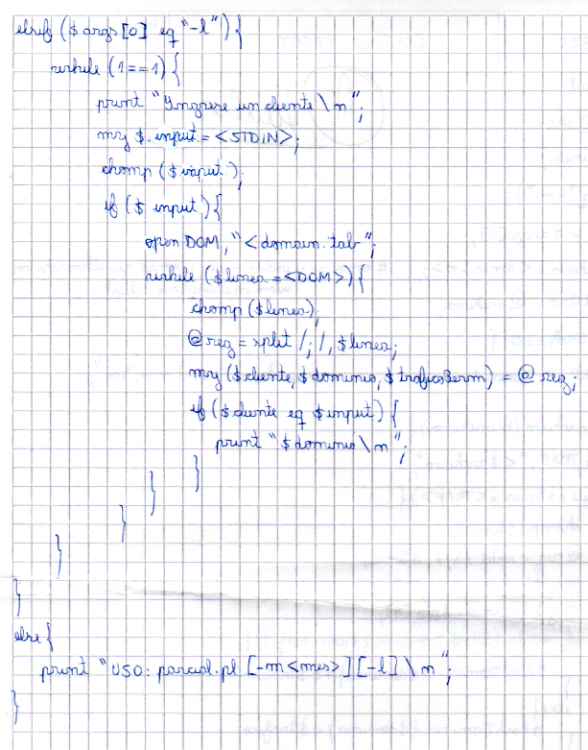 elsif ($args[0] eq "-l"){
while (1==1){
print "Ingrese un cliente\n";
my $input=<STDIN>;
chomp ($input);
if ($input){
open DOM,"<domain.tab";
while ($linea=<DOM>){
chomp ($linea);
@reg=split /;/,$linea;
my ($cliente,$dominio,$traficoPerm) = @reg;
if ($cliente eq $input){
print "$dominio\n";
}
}
}
}
}
else{
print "USO: parcial.pl [-m<mes>][-l]\n";
}